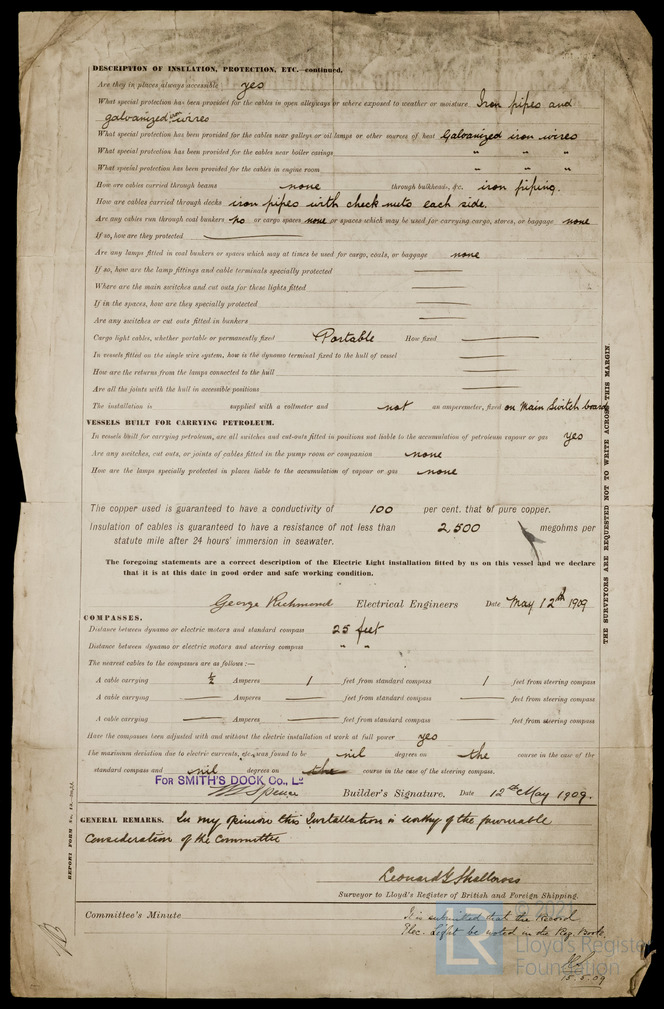 DESCRIPTION OF INSULATION, PROTECTION, ETC.—continued.
Are they in places always accessible yes
What special protection has been provided for the cables in open alleyways or where exposed to weather or moisture Iron pipes and
galvanized iron wires
What special protection has been provided for the cables near galleys or oil lamps or other sources of heat Galvanized iron wires
What special protection has been provided for the cables near boiler casings " " "
What special protection has been provided for the cables in engine room " " "
How are cables carried through beams none through bulkheads, &c. iron piping.
How are cables carried through decks iron pipes with check nuts each side.
Are any cables run through coal bunkers no or cargo spaces none or spaces which may be used for carrying cargo, stores, or baggage none
If so, how are they protected
Are any lamps fitted in coal bunkers or spaces which may at times be used for cargo, coals, or baggage none
If so, how are the lamp fittings and cable terminals specially protected
Where are the main switches and cut outs for these lights fitted
If in the spaces, how are they specially protected
Are any switches or cut outs fitted in bunkers
Cargo light cables, whether portable or permanently fixed Portable How fixed
In vessels fitted on the single wire system, how is the dynamo terminal fixed to the hull of vessel
How are the returns from the lamps connected to the hull
Are all the joints with the hull in accessible positions
The installation is supplied with a voltmeter and not an amperemeter, fixed on Main Switch board
VESSELS BUILT FOR CARRYING PETROLEUM.
In vessels built for carrying petroleum, are all switches and cut-outs fitted in positions not liable to the accumulation of petroleum vapour or gas yes
Are any switches, cut outs, or joints of cables fitted in the pump room or companion none
How are the lamps specially protected in places liable to the accumulation of vapour or gas none
The copper used is guaranteed to have a conductivity of 100 per cent. that of pure copper.
Insulation of cables is guaranteed to have a resistance of not less than 2500 megohms per
statute mile after 24 hours' immersion in seawater.
The foregoing statements are a correct description of the Electric Light installation fitted by us on this vessel and we declare
that it is at this date in good order and safe working condition.
George Richmond Electrical Engineers Date May 12th 1909
COMPASSES.
Distance between dynamo or electric motors and standard compass 25 feet
Distance between dynamo or electric motors and steering compass " "
The nearest cables to the compasses are as follows:—
A cable carrying ½ Amperes 1 feet from standard compass 1 feet from steering compass
A cable carrying Amperes feet from standard compass feet from steering compass
A cable carrying Amperes feet from standard compass feet from steering compass
Have the compasses been adjusted with and without the electric installation at work at full power yes
The maximum deviation due to electric currents, etc., was found to be nil degrees on the course in the case of the
standard compass and nil degrees on the course in the case of the steering compass.
FOR SMITH'S DOCK Co., Ld
Spence Builder's Signature. Date 12th May 1909.
GENERAL REMARKS. In my opinion this Installation is worthy of the favourable
Consideration of the Committee
Leonard G Shallcross
Surveyor to Lloyd's Register of British and Foreign Shipping.
Committee's Minute It is submitted that the Record
Elec. Light be noted in the Reg. Book.
15.5.09
THE SURVEYORS ARE REQUESTED NOT TO WRITE ACROSS THIS MARGIN.
REPORT FORM No.
LR
Lloyd's Register
Foundation